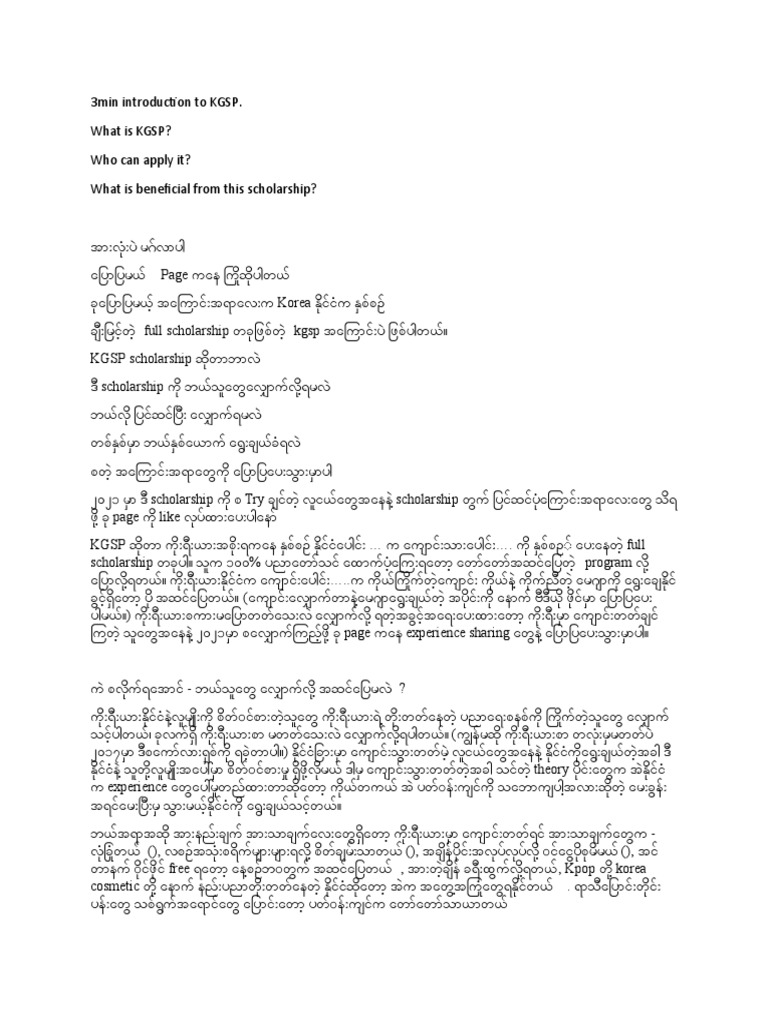 3min introduction to KGSP.
What is KGSP?
Who can apply it?
What is beneficial from this scholarship?
အားလုံးပဲ မင်္ဂလာပါ
ပြောပြမယ် Page ကနေ ကြိုဆိုပါတယ်
ခုပြောပြမယ့် အကြောင်းအရာလေးက Korea နိုင်ငံက နှစ်စဉ်
ချီးမြှင့်တဲ့ full scholarship တခုဖြစ်တဲ့ kgsp အကြောင်းပဲ ဖြစ်ပါတယ်။
KGSP scholarship ဆိုတာဘာလဲ
ဒီ scholarship ကို ဘယ်သူတွေလျှောက်လို့ရမလဲ
ဘယ်လို ပြင်ဆင်ပြီး လျှောက်ရမလဲ
တစ်နှစ်မှာ ဘယ်နှစ်ယောက် ရွေးချယ်ခံရလဲ
စတဲ့ အကြောင်းအရာတွေကို ပြောပြပေးသွားမှာပါ
၂၀၂၁ မှာ ဒီ scholarship ကို စ Try ချင်တဲ့ လူငယ်တွေအနေနဲ့ scholarship တွက် ပြင်ဆင်ပုံကြောင်းအရာလေးတွေ သိရ
ဖို့ ခု page ကို like လုပ်ထားပေးပါနော်
KGSP ဆိုတာ ကိုးရီးယားအစိုးရကနေ နှစ်စဉ် နိုင်ငံပေါင်း … က ကျောင်းသားပေါင်း…. ကို နှစ်စဥ် ပေးနေတဲ့ full
scholarship တခုပါ။ သူက ၁၀၀% ပညာတော်သင် ထောက်ပံ့ကြေးရတော့ တော်တော်အဆင်ပြေတဲ့ program လို့
ပြောလို့ရတယ်။ ကိုးရီးယားနိုင်ငံက ကျောင်းပေါင်း…..က ကိုယ်ကြိုက်တဲ့ကျောင်း ကိုယ်နဲ့ ကိုက်ညီတဲ့ မေဂျာကို ရွေးချေနိုင်
ခွင့်ရှိတော့ ပို အဆင်ပြေတယ်။ (ကျောင်းလျှောက်တာနဲ့မေဂျာရွေးချယ်တဲ့ အပိုင်းကို နောက် ဗီဒီယို ဖိုင်မှာ ပြောပြပေး
ပါမယ်။) ကိုးရီးယားစကားမပြောတတ်သေးလဲ လျှောက်လို့ ရတဲ့အခွင့်အရေးပေးထားတော့ ကိုးရီးမှာ ကျောင်းတတ်ချင်
ကြတဲ့ သူတွေအနေနဲ့ ၂၀၂၁မှာ စလျှောက်ကြည့်ဖို့ ခု page ကနေ experience sharing တွေနဲ့ ပြောပြပေးသွားမှာပါ။
ကဲ စလိုက်ရအောင် - ဘယ်သူတွေ လျှောက်လို့ အဆင်ပြေမလဲ ?
ကိုးရီးယားနိုင်ငံနဲ့လူမျိုးကို စိတ်ဝင်စားတဲ့သူတွေ ကိုးရီးယားရဲ့တိုးတတ်နေတဲ့ ပညာရေးစနစ်ကို ကြိုက်တဲ့သူတွေ လျှောက်
သင့်ပါတယ်၊ ခုလက်ရှိ ကိုးရီးယားစာ မတတ်သေးလဲ လျှောက်လို့ရပါတယ်။ (ကျွန်မဆို ကိုးရီးယားစာ တလုံးမှမတတ်ပဲ
၂၀၁၇မှာ ဒီစကော်လားရှစ်ကို ရခဲ့တာပါ။) နိုင်ငံခြားမှာ ကျောင်းသွားတတ်မဲ့ လူငယ်တွေအနေနဲ့ နိုင်ငံကိုရွေးချယ်တဲ့အခါ ဒီ
နိုင်ငံနဲ့ သူတို့လူမျိုးအပေါ်မှာ စိတ်ဝင်စားမှု ရှိဖို့လိုမယ် ဒါမှ ကျောင်းသွားတတ်တဲ့အခါ သင်တဲ့ theory ပိုင်းတွေက အဲနိုင်ငံ
က experience တွေပေါ်မူတည်ထားတာဆိုတော့ ကိုယ်တကယ် အဲ ပတ်ဝန်းကျင်ကို သဘောကျပါ့အလားဆိုတဲ့ မေးခွန်း
အရင်မေးပြီးမှ သွားမယ့်နိုင်ငံကို ရွေးချယ်သင့်တယ်။
ဘယ်အရာအဆို အားနည်းချက် အားသာချက်လေးတွေရှိတော့ ကိုးရီးယားမှာ ကျောင်းတတ်ရင် အားသာချက်တွေက -
လုံခြုံတယ် (), လစဉ်အသုံးစရိတ်များများရလို့ စိတ်ချမ်းသာတယ် (), အချိန်ပိုင်းအလုပ်လုပ်လို့ ဝင်ငွေပိုစုမိမယ် (), အင်
တာနက် ဝိုင်ဖိုင် free ရတော့ နေ့စဉ်ဘဝတွက် အဆင်ပြေတယ် , အားတဲ့ချိန် ခရီးထွက်လို့ရတယ်, Kpop တို့ korea
cosmetic တို့ နောက် နည်းပညာတိုးတတ်နေတဲ့ နိုင်ငံဆိုတော့ အဲက အတွေ့အကြုံတွေရနိုင်တယ် . ရာသီပြောင်းတိုင်း
ပန်းတွေ သစ်ရွက်အရောင်တွေ ပြောင်းတော့ ပတ်ဝန်းကျင်က တော်တော်သာယာတယ်